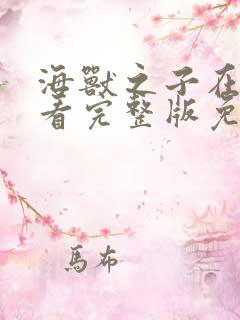 海獸之子在
看完整版免
馬布